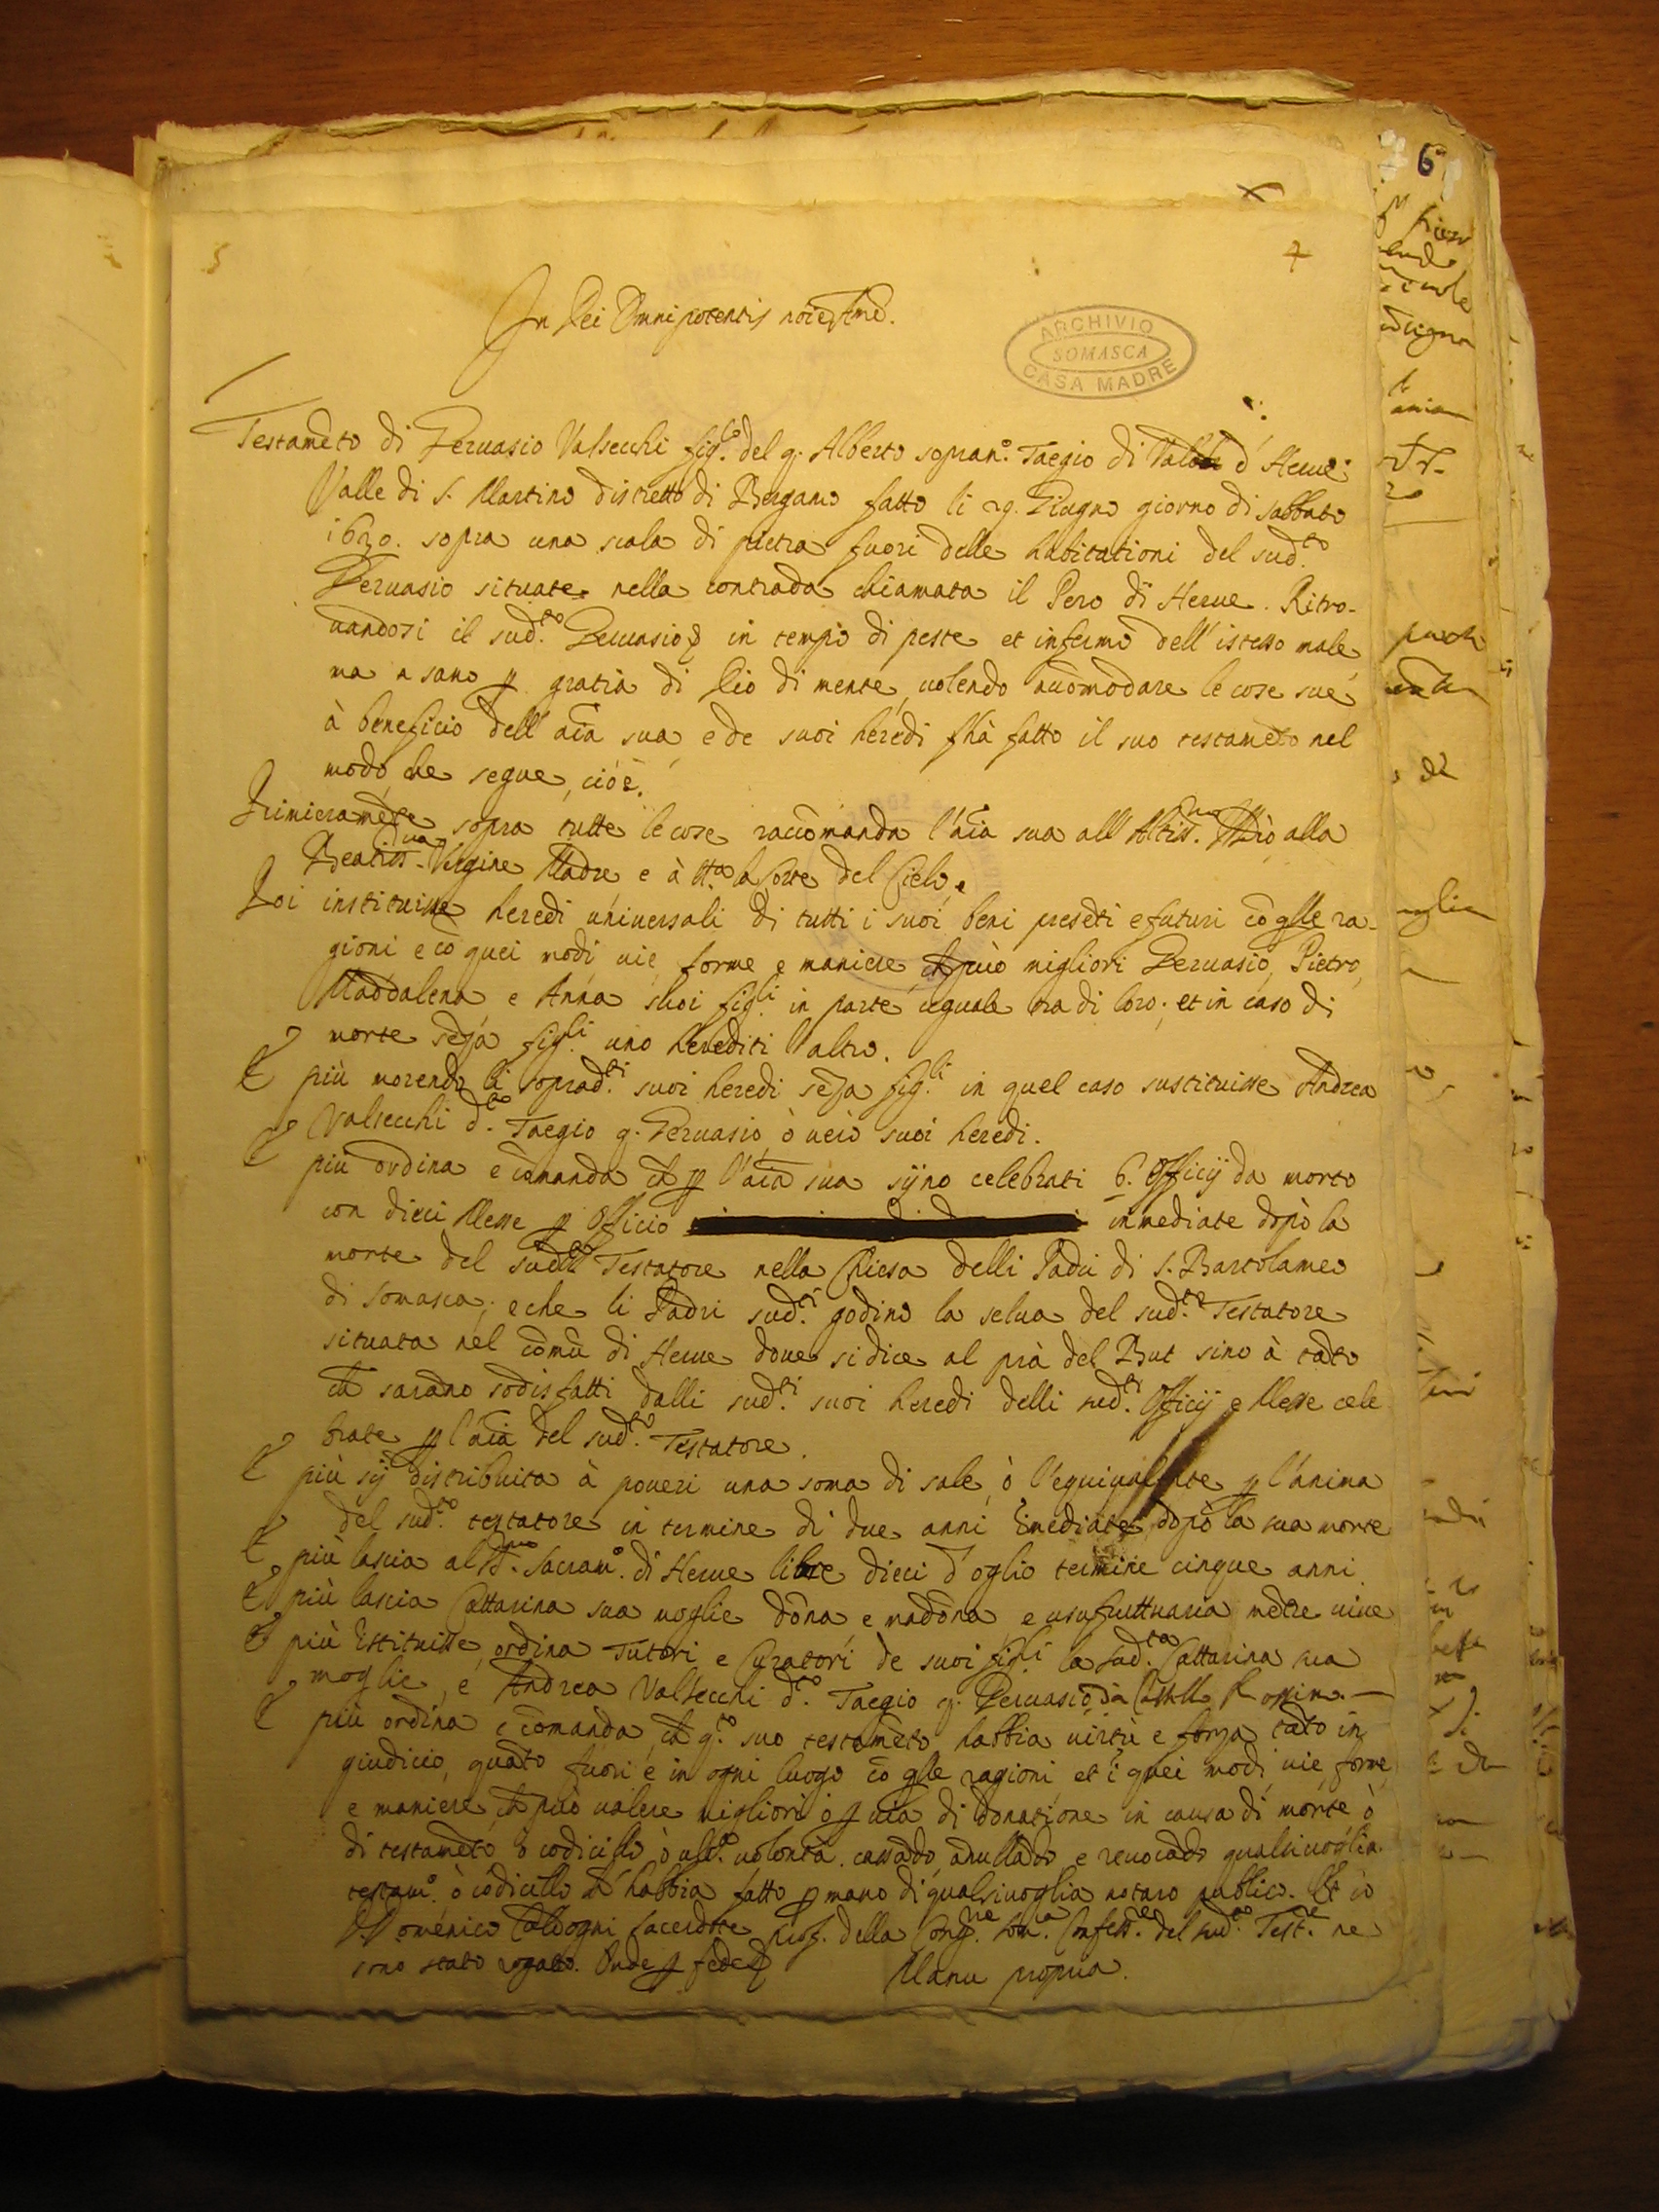 6
7
In Dei Omnipotentis noie Amē.
ARCHIVIO
SOMASCA
CASA MADRE
Testamēto di Geruasio Valsecchi fig.lo del q. Alberto sopran.o Taegio di d'Herue
Valle di S. Martino distretto di Bergamo fatto li 29. Giugno giorno di sabbato
1630. sopra una scala di pietra fuori delle habitationi del sud.to
Geruasio situate nella contrada chiamata il Pero di Herue. Ritro-
uandosi il sud.to Geruasio in tempo di peste et infermo dell'istesso male
ma sano p gratia di Dio di mente, uolendo accōmodare le cose sue
à beneficio dell'aīa sua e de suoi heredi hà fatto il suo testamēto nel
modo, che segue, cioè.
Primieramēte sopra tutte le cose raccōmanda l'aīa sua all'Altiss.mo Dio alla
Beatiss.ma Vergine Madre e à tt.a la Corte del Cielo.
Poi instituisse heredi uniuersali di tutti i suoi beni presēti e futuri cō qlle ra-
gioni e cō quei modi uie forme e maniere ch può migliori Geruasio, Pietro,
Maddalena e Anna suoi fig.li in parte uguale tra di loro; et in caso di
morte seza fig.li uno herediti l'altro.
E più morendo li soprad.ti suoi heredi seza fig.li in quel caso sustituisse Andrea
Valsecchi d.to Taegio q. Geruasio, ò uero suoi heredi.
E più ordina e comanda ch p l'aīa sua sijno celebrati 6. Officij da morto
con dieci Messe p Officio immediate dopò la
morte del sud.to Testatore nella Chiesa delli Padri di S. Bartolameo
di Somasca; e che li Padri sud.ti godino la selua del sud.to Testatore
situata nel cōmū di Herue doue si dice al prà del But sino à tāto
ch sarāno sodisfatti dalli sud.ti suoi heredi delli sud.ti Officij e Messe cele
brate p l'aīa del sud.to Testatore.
E più sij distribuita à poueri una soma di sale, ò l'equiualente p l'anima
del sud.to testatore in termine di due anni īmediate dopò la sua morte
E più lascia al SS.mo Sacram.o di Herue libre dieci d'oglio termine cinque anni.
E più lascia Cattarina sua moglie dōna e madōna e usufruttuaria mētre uiue
E più īstituisse, ordina Tutori e Curatori de suoi fig.li la sud.ta Cattarina sua
moglie, e Andrea Valsecchi d.to Taegio q. Geruasio da
E più ordina e comanda, ch q.to suo testamēto habbia uirtù e forza tāto in
giudicio, quāto fuori e in ogni luogo cō qlle ragioni et ī quei modi, uie, forme,
e maniere ch può ualere migliori ò p uia di donatione in causa di morte ò
di testamēto ò codicillo ò ult.a uolontà. cassādo, anullādo e reuocādo qualsiuoglia
testam.o ò codicillo ch habbia fatto p mano di qualsiuoglia notaro publico. Et io
D. Domenico Caldogni Sacerdote prof. della Cong.ne Som.a Confess.re del sud.to Test.re ne
sono stato rogato. Onde p fede Manu propria.